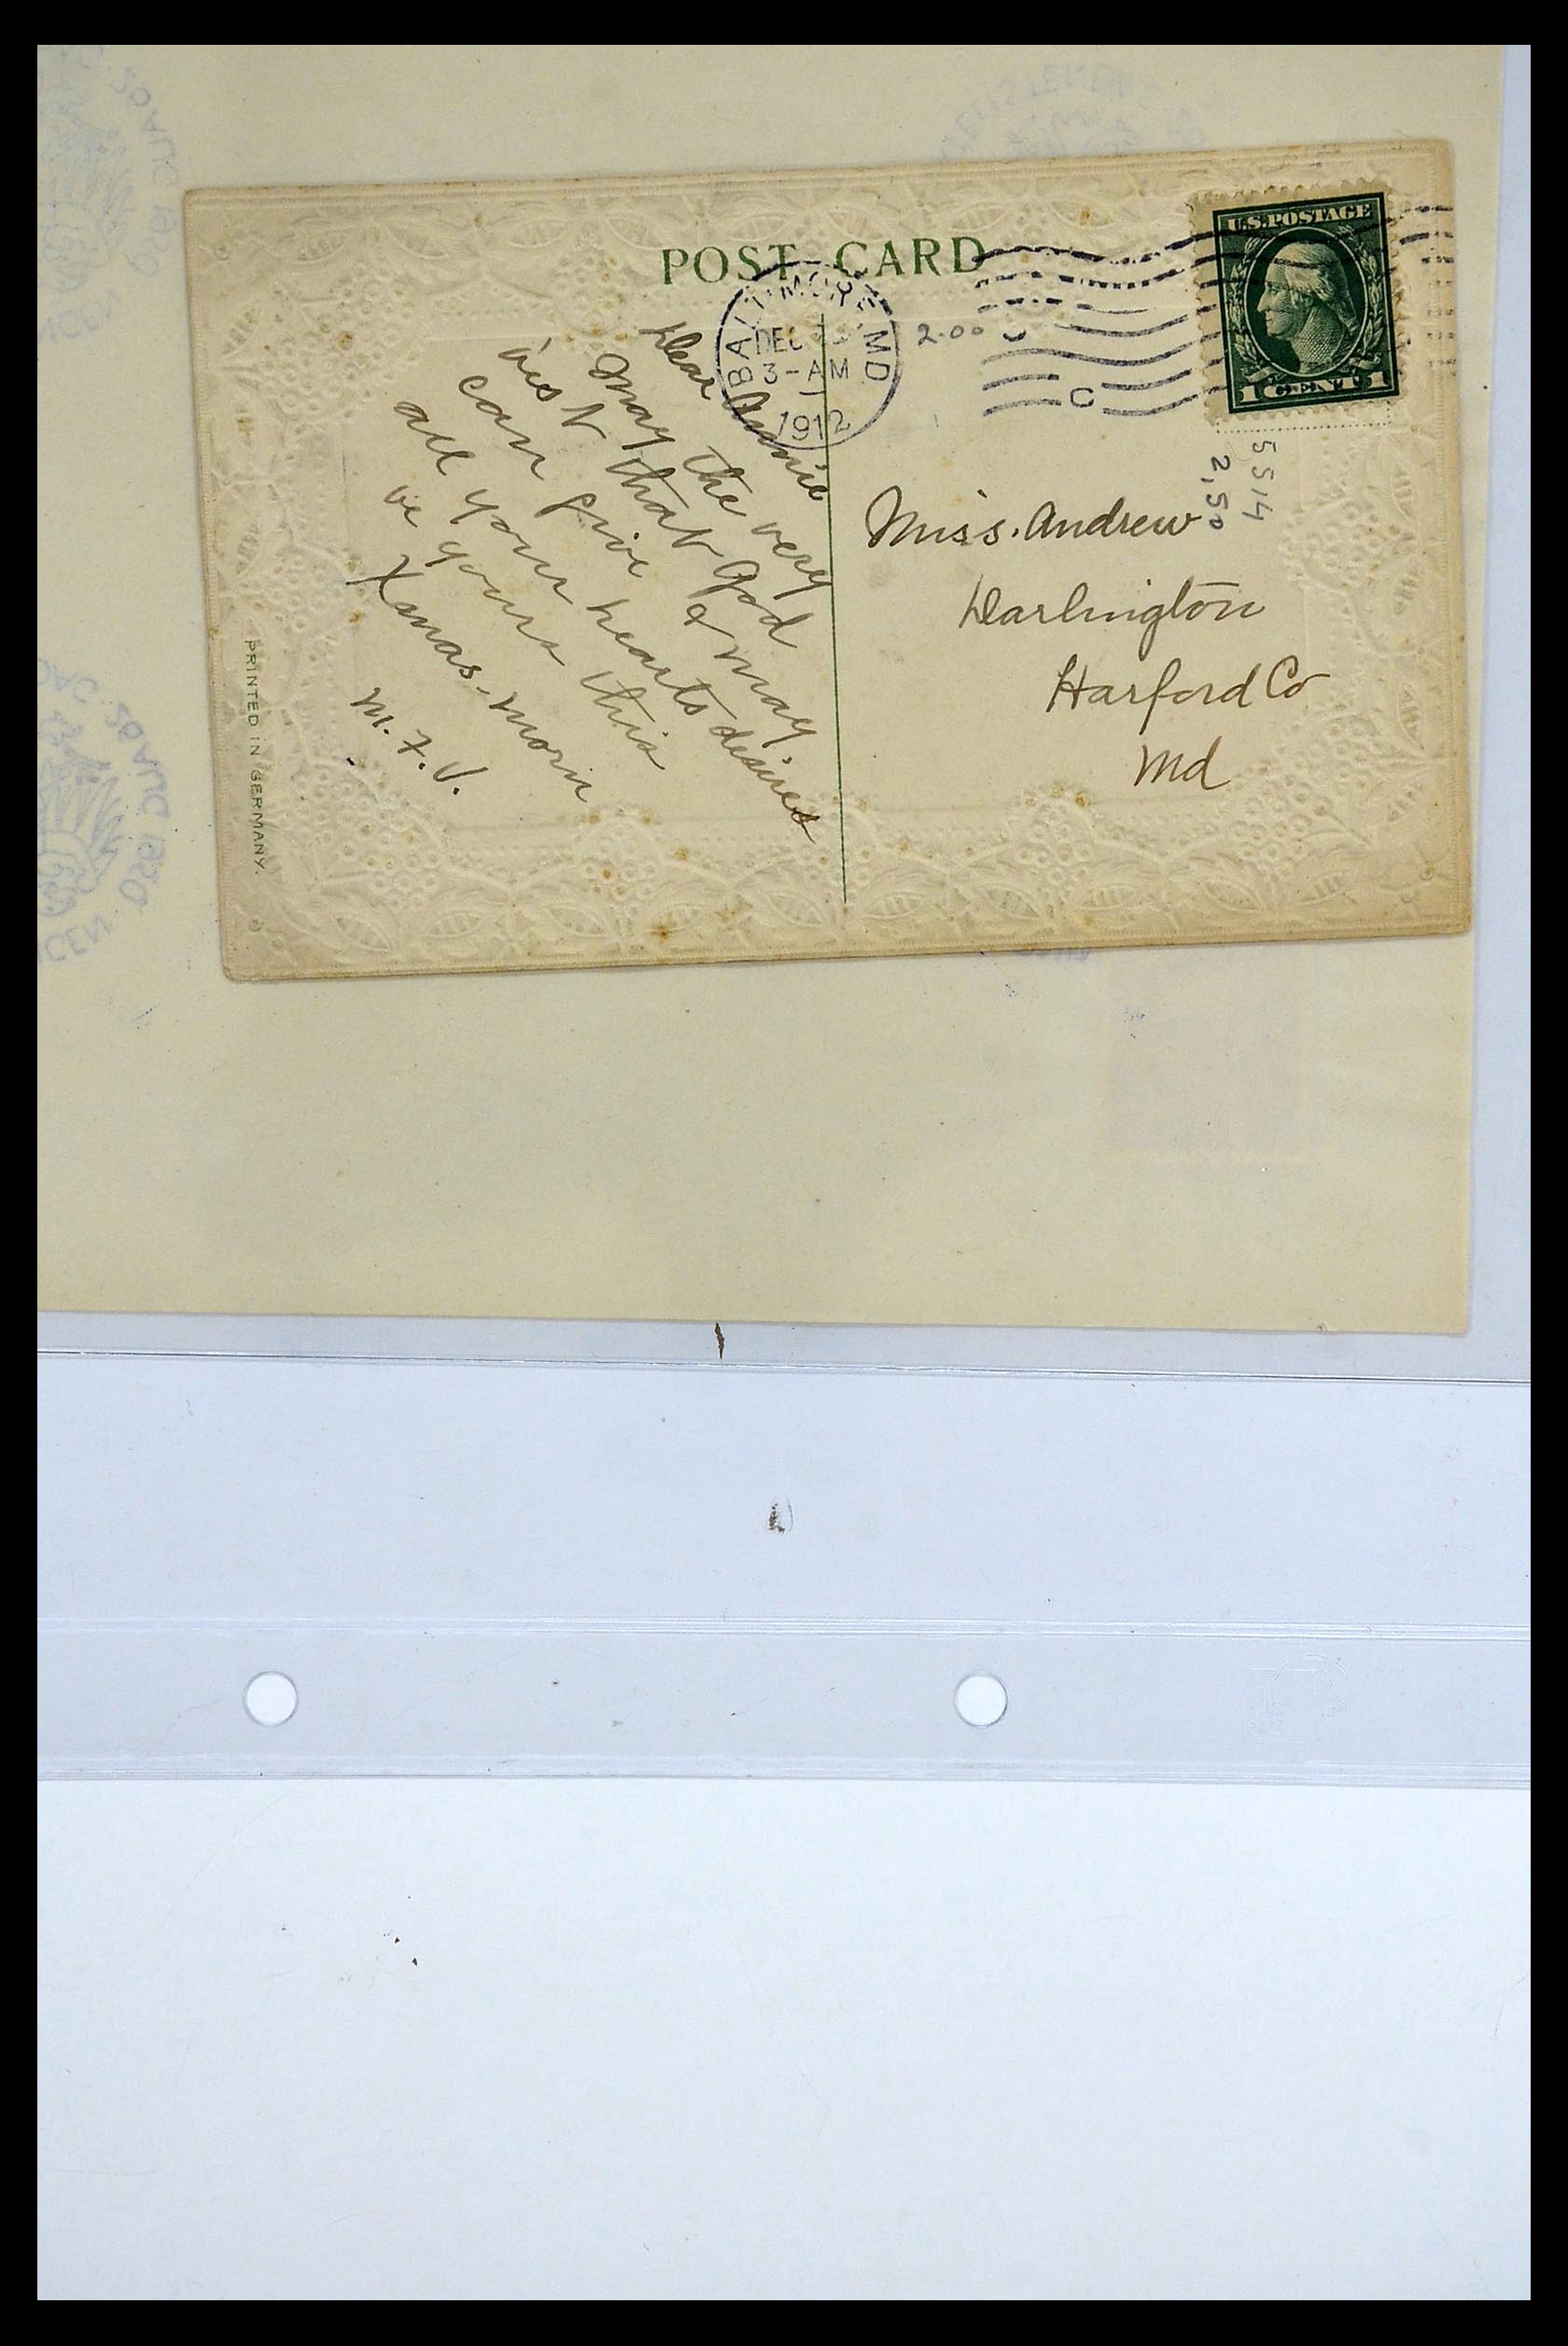 POST CARD
U.S. POSTAGE
1 CENT 1
BALTIMORE, MD
DEC
3-AM
1912
C
2.00
5514
2,50
Dear Annie
May the very
best that God
can give & may
all your hearts desires
be yours this
Xmas-morn
M. F. V.
Miss. Andrew
Darlington
Harford Co
Md
PRINTED IN GERMANY.